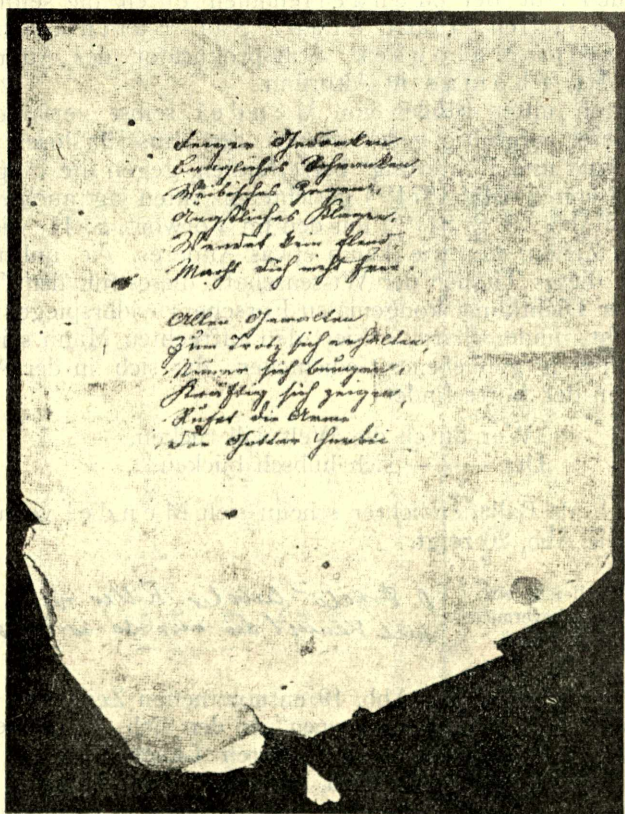 Feiger Gedanken
Bängliches Schwanken,
Weibisches Zagen,
Ängstliches Klagen,
Wendet kein Elend,
Macht dich nicht frei.
Allen Gewalten
Zum Trotz sich erhalten,
Nimmer sich beugen,
Kräftig sich zeigen,
Rufet die Arme
Der Götter herbei